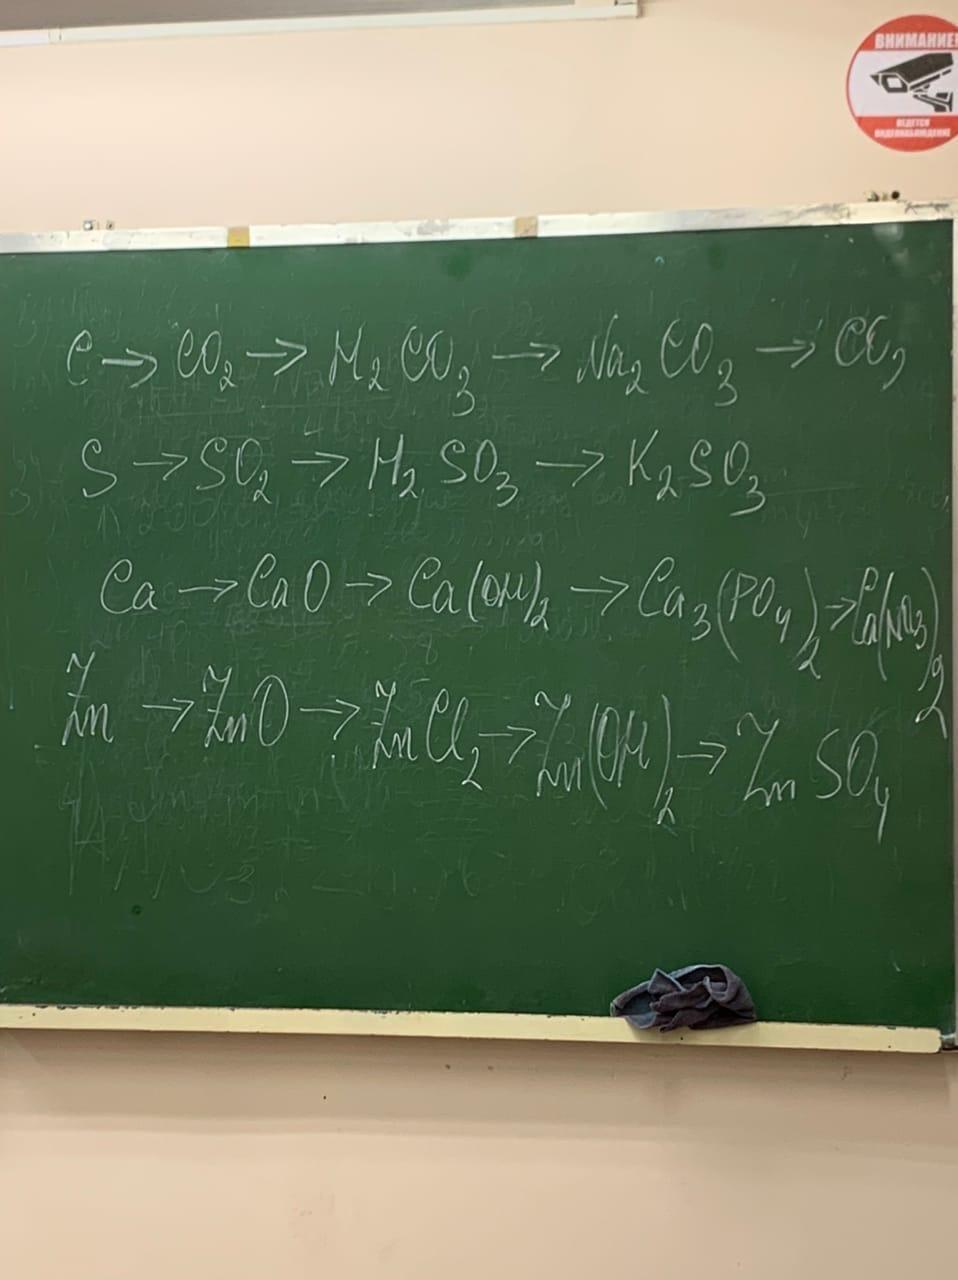 ВНИМАНИЕ!
ВЕДЕТСЯ
ВИДЕОНАБЛЮДЕНИЕ
C → CO₂ → H₂CO₃ → Na₂CO₃ → CO₂
S → SO₂ → H₂SO₃ → K₂SO₃
Ca → CaO → Ca(OH)₂ → Ca₃(PO₄)₂ → Ca(NO₃)₂
Zn → ZnO → ZnCl₂ → Zn(OH)₂ → ZnSO₄